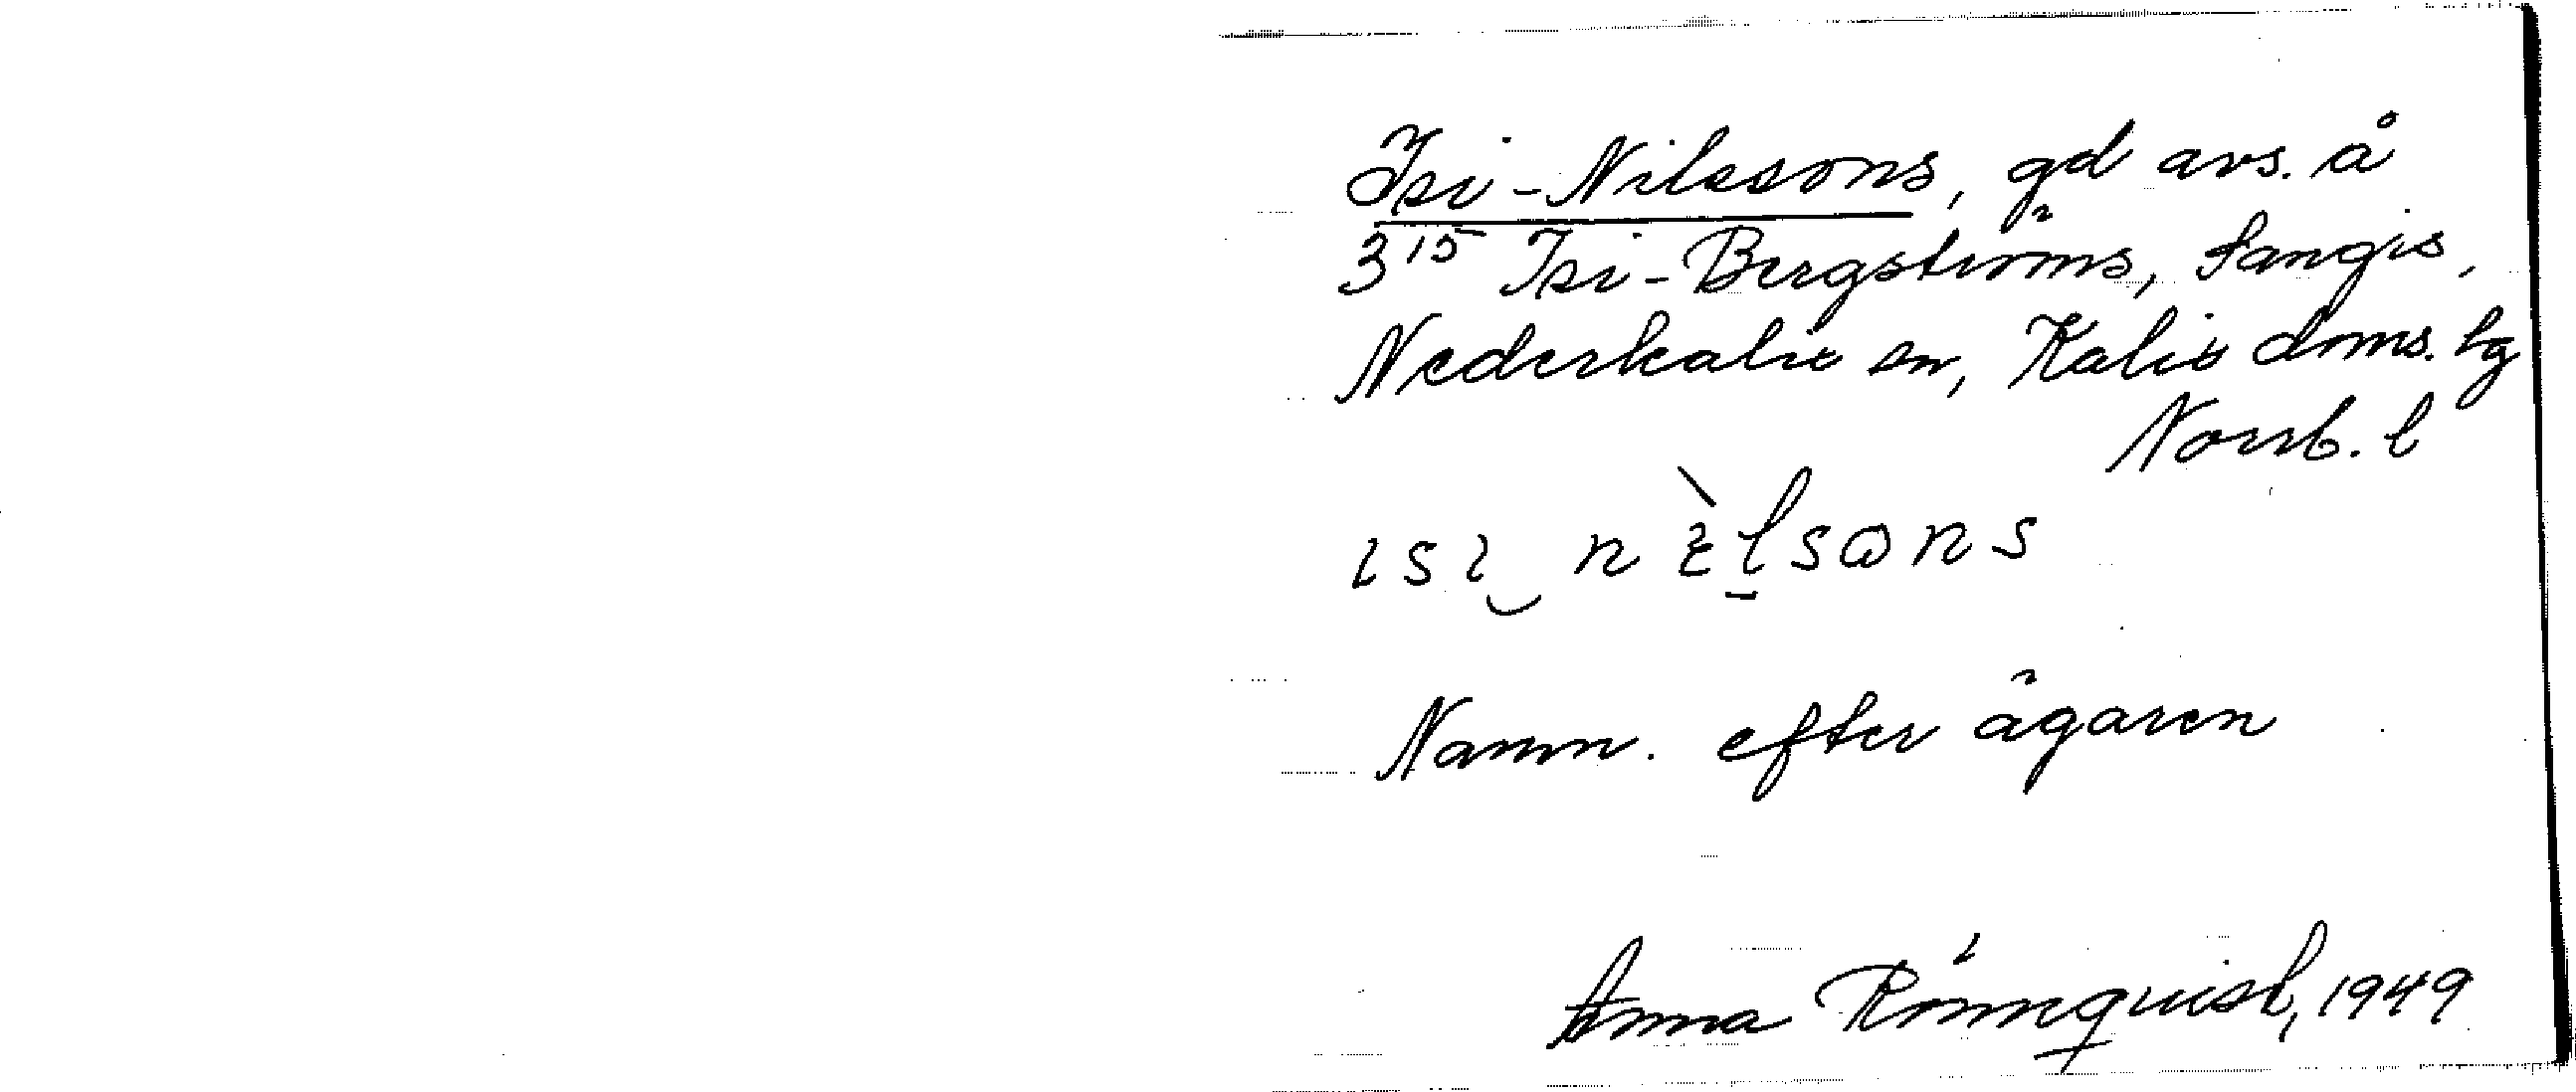 Isi-Nilssons, gd avs. å
3¹⁵ Isi-Bergströms, Sangis,
Nederkalix sn, Kalix doms. lg
Norrb. l
ɩsɩ nὲlsɷns
Namn. efter ägaren
Anna Rönnquist, 1949